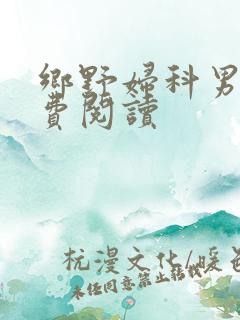 鄉野婦科男
費閱讀
杭漫文化/暖
未經同意禁止轉載